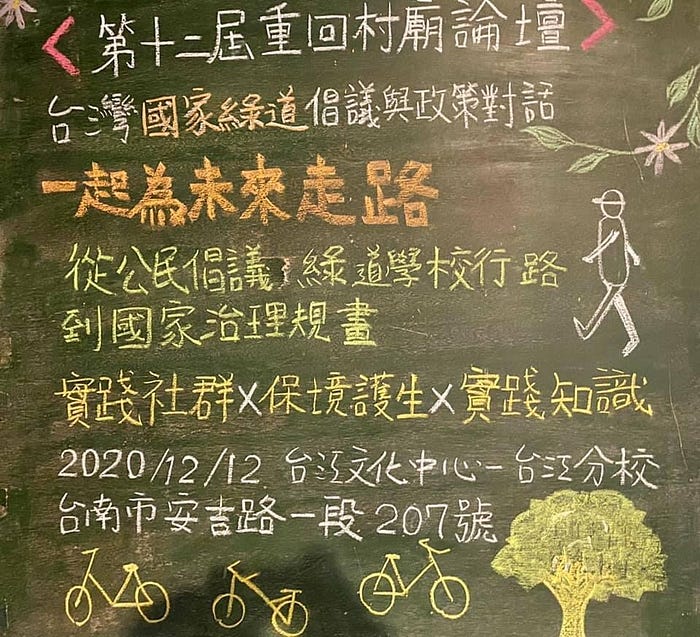 <第十二屆重回村廟論壇>
台灣國家綠道倡議與政策對話
一起為未來走路
從公民倡議 綠道學校行路
到國家治理規畫
實踐社群X保境護生X實踐知識
2020/12/12 台江文化中心-台江分校
台南市安吉路一段207號